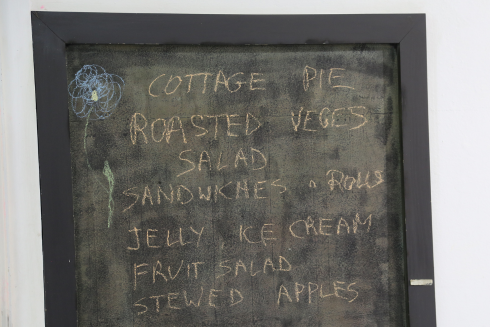 COTTAGE PIE
ROASTED VEGES
SALAD
SANDWICHES n ROLLS
JELLY, ICE CREAM
FRUIT SALAD
STEWED APPLES